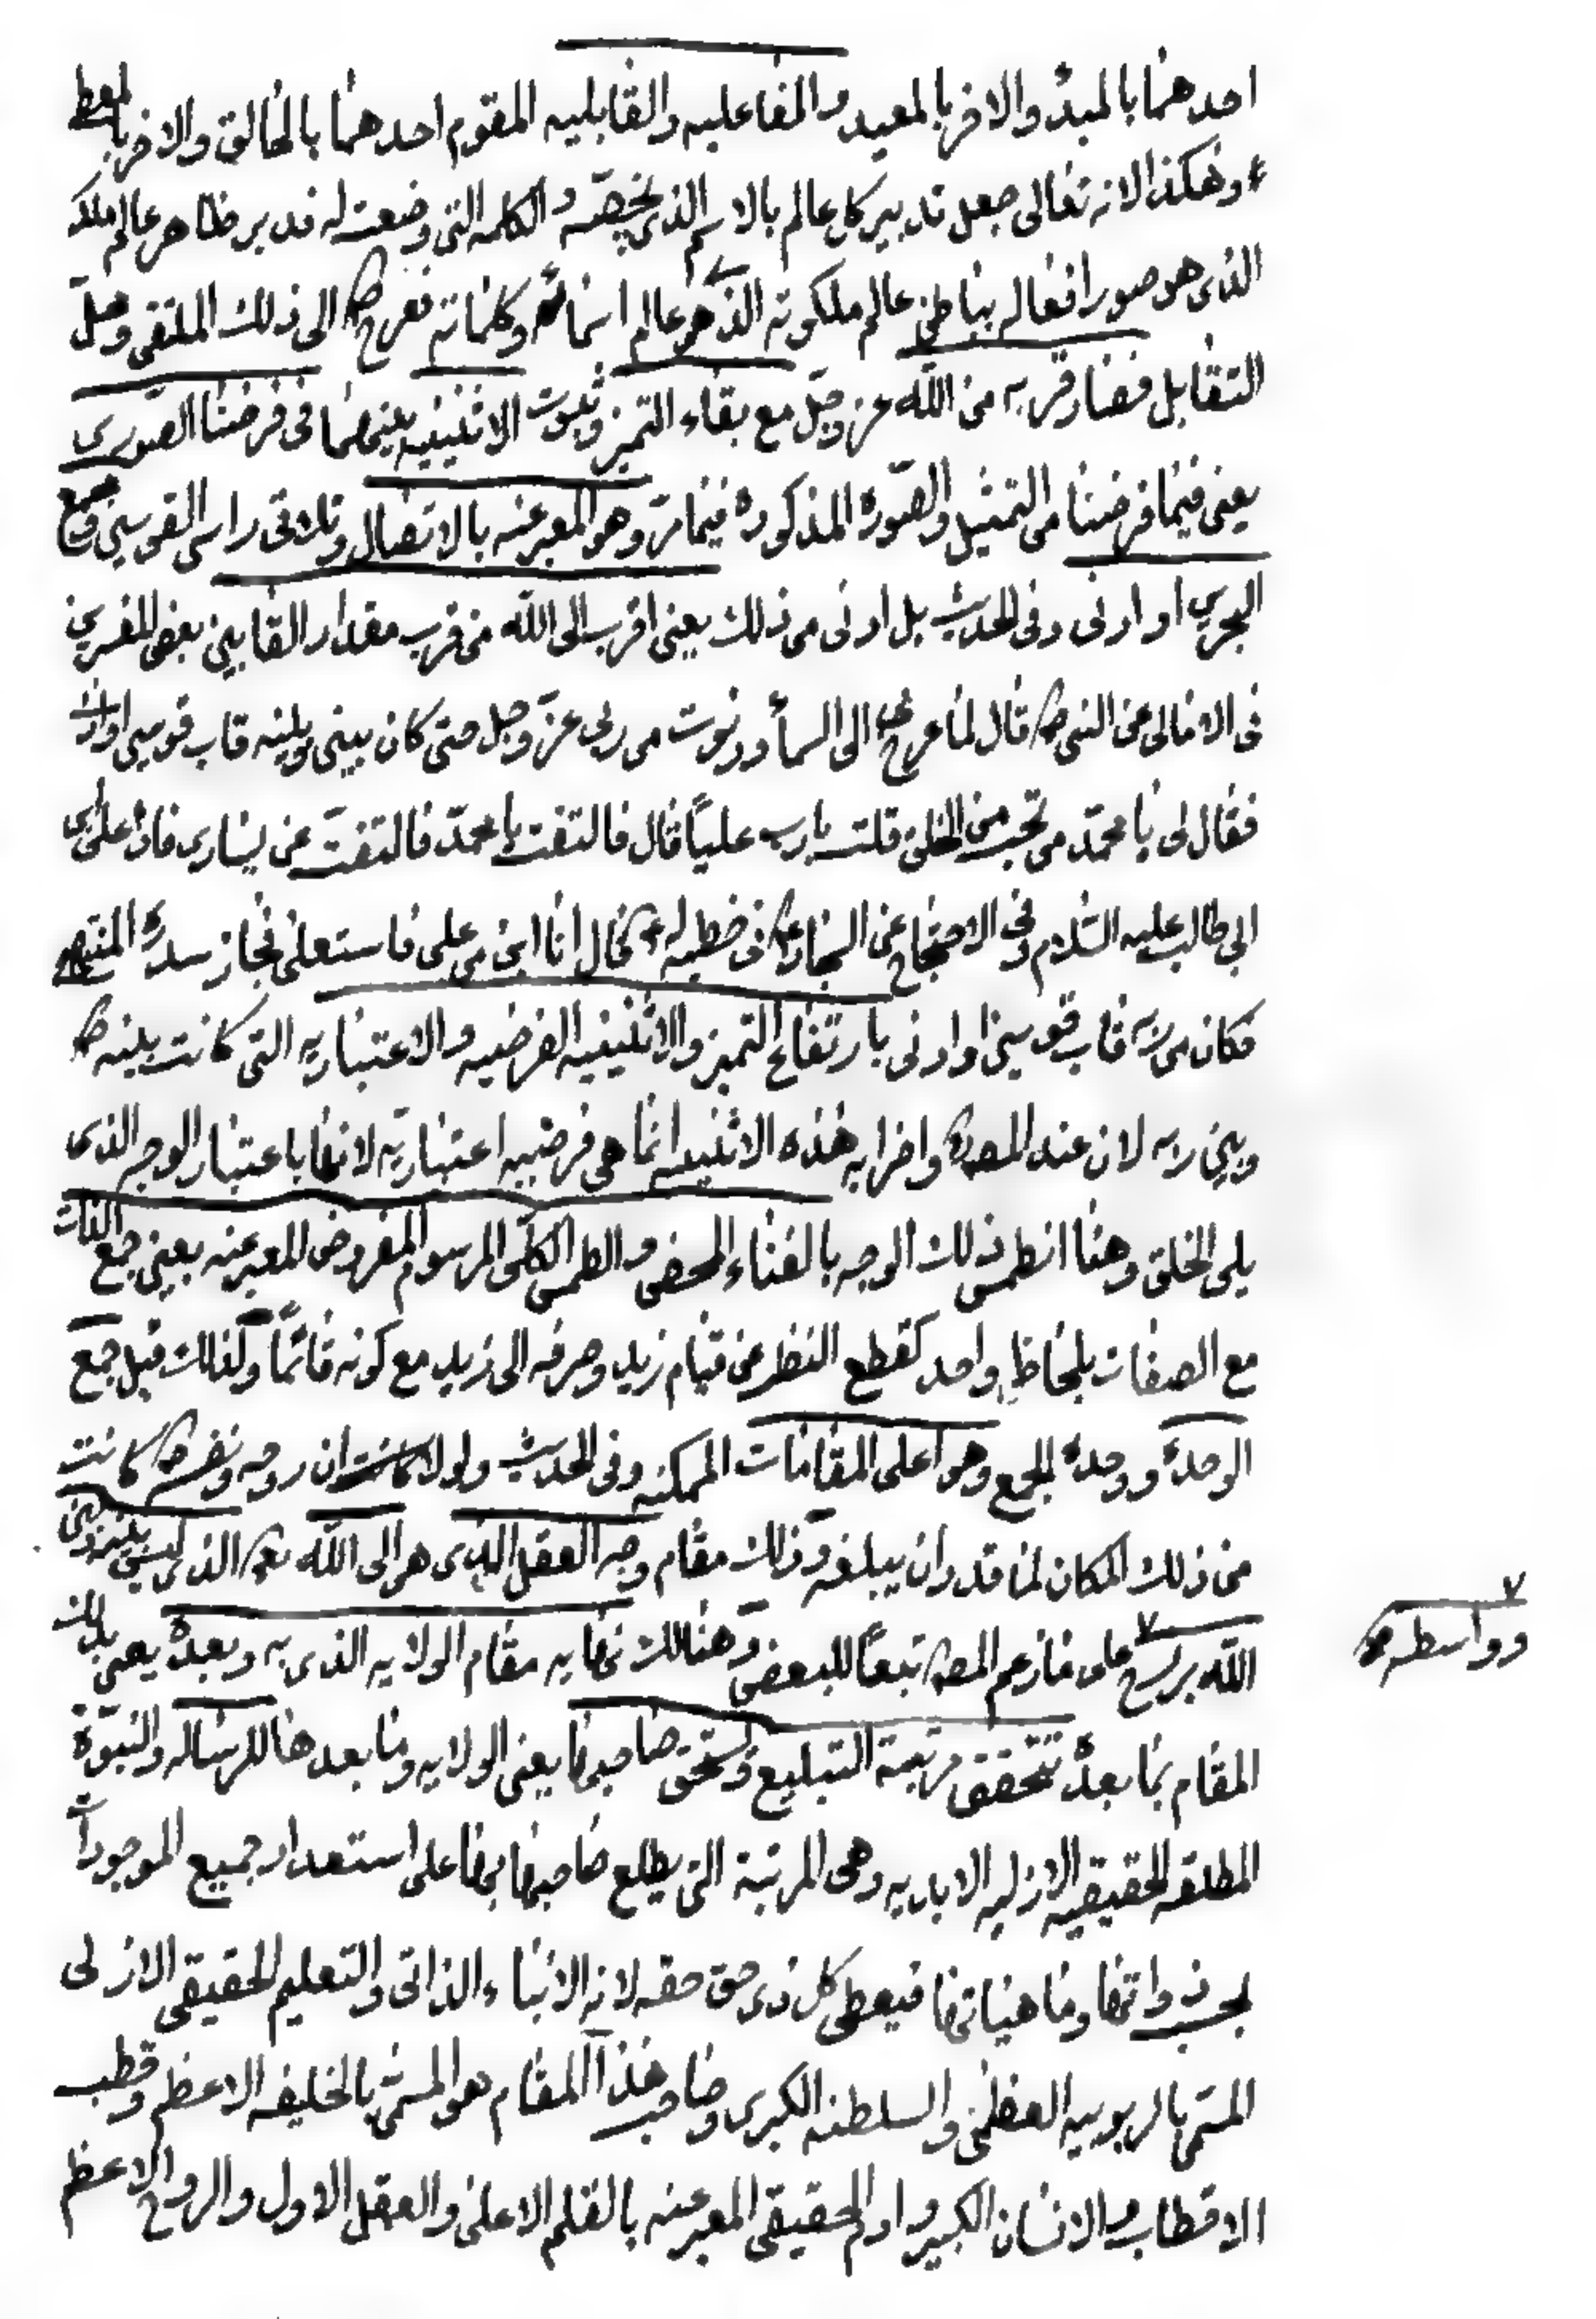 احدهما بالمبدئ والاخر بالمعيد والفاعليه والقابليه المقوم احدهما بالخالق والاخر بالمعطی
وهكذا لانه تعالى جعل تدبير كل عالم بالاسم الذى يخصّه والكلمه التى وضعت له فدبر ظاهر عالم ملكه
الذى هو صور افعاله بباطن عالم ملكوته الذى هو عالم اسمائه وكلماته فعرج ص الى ذلك الملتقى وحصل
التقابل فصار قربه من الله عز وجل مع بقاء التميز وثبوت الاثنينيه بينهما فى فرضنا الصورى
يعنى فيما فرضنا من التمثيل والصّوره المذكوره فيما مرّ وهو المعبر عنه بالاتصال وتلاقى راس القوسين
او ادنى وفى الحديث بل ادنى من ذلك يعنى اقرب الى الله من قرب مقدار القابين بعض المفسرين
فى الامالى عن النبى ص قال لما عرج بى الى السمأ ودنوت من ربى عزّ وجل حتى كان بينى وبينه قاب قوسين او ادنى
فقال لى يا محمّد من تحب من الخلق قلت يا رب علياً قال فالتفت يا محمّد فالتفتّ عن يسارى فاذا على بن
ابى طالب عليه السّلام وفى الاحتجاج عن السجاد ع فى خطبه له قال انا ابن من على فاستعلى فجاز سدرة المنتهى
فكان من ربه قاب قوسين او ادنى بارتفاع التميز والاثنينيه الفرضيه والاعتباريه التى كانت بينه ص
وبين ربه لان عند المص واضرابه هذه الاثنينيه انما هى فرضيه اعتباريّه لانها باعتبار الوجه الذى
يلى الخلق وهنا انطمس ذلك الوجه بالفناء المحض والطمس الكلّى المرسوم المفروض المعبر عنه بعين جمع الذات
مع الصفات بلحاظ واحد كقطع النظر عن قيام زيد وصرفه الى زيد مع كونه قائماً وكذلك قبل جمع
الوحدة ووحدة الجمع وهو اعلى المقامات الممكنه وفى الحديث ولولا ان روحه ونفسه ص كانت
من ذلك المكان لما قدر ان يبلغه وذلك مقام وجه العقل الذى هو الى الله الذى ليس بينه وبين
الله برزخ على ما زعم المص تبعاً للبعض وهنالك نهايه مقام الولايه الذى به وبعدهٔ يعنى بذلك
وواسطه
المقام بما بعده تتحقق مرتبة التبليغ وتستحق صاحبها يعنى الولايه وما بعدها للرساله والنبوّة
المطلقه الحقيقيه الازليه الابديه وهى المرتبة التى يطلع صاحبها بها على استعداد جميع الموجودات
بحسب ذواتها وماهياتها فيعطى كل ذى حق حقه لانه الانباء الذاتى والتعليم الحقيقى الازلى
المسمّى بالربوبيه العظمى والسلطنه الكبرى وصاحب هذا المقام هو المسمّى بالخليفه الاعظم وقطب
الاقطاب والانسان الكبير وادم الحقيقى المعبر عنه بالقلم الاعلى والعقل الاول والروح الاعظم